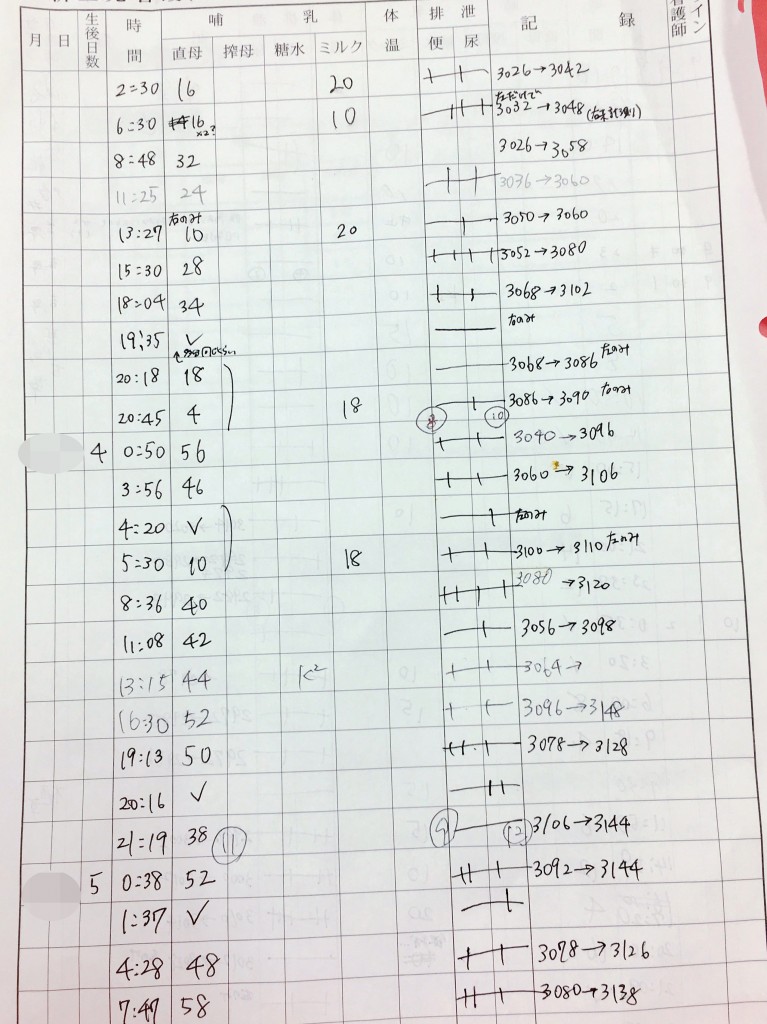 月 日 生後日数 時間 哺乳 体温 排泄 記録 看護師 イン
直母 搾母 糖水 ミルク 便 尿
2:30 16 20 3026→3042
左だけで
6:30 16 x2? 10 3032→3048
8:48 32 3026→3058
11:25 24 3036→3060
右のみ
13:27 10 20 3050→3060
15:30 28 3052→3080
18:04 34 3068→3102
19:35 ✓ 右のみ
20:18 18 3068→3086 左のみ
20:45 4 18 3086→3090 左のみ
8 10
4 0:50 56 3040→3096
3:56 46 3060→3106
4:20 ✓ 左のみ
5:30 10 18 3100→3110 左のみ
8:36 40 3080→3120
11:08 42 3056→3098
13:15 44 K2 3064→
16:30 52 3096→3148
19:13 50 3078→3128
20:16 ✓
21:19 38 11 9 12 3106→3144
5 0:38 52 3092→3144
1:37 ✓
4:28 48 3078→3126
7:47 58 3080→3138